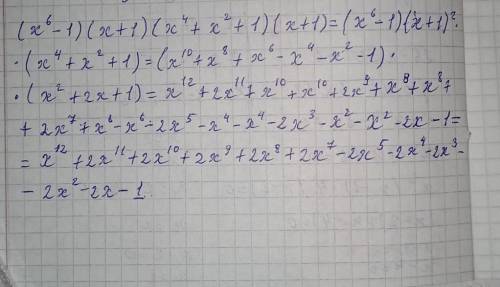 (x⁶-1)(x+1)(x⁴+x²+1)(x+1)=(x⁶-1)(x+1)².
·(x⁴+x²+1)=(x¹⁰+x⁸+x⁶-x⁴-x²-1)·
·(x²+2x+1)=x¹²+2x¹¹+x¹⁰+x¹⁰+2x⁹+x⁸+x⁸+
+2x⁷+x⁶-x⁶-2x⁵-x⁴-x⁴-2x³-x²-x²-2x-1=
=x¹²+2x¹¹+2x¹⁰+2x⁹+2x⁸+2x⁷-2x⁵-2x⁴-2x³-
-2x²-2x-1.